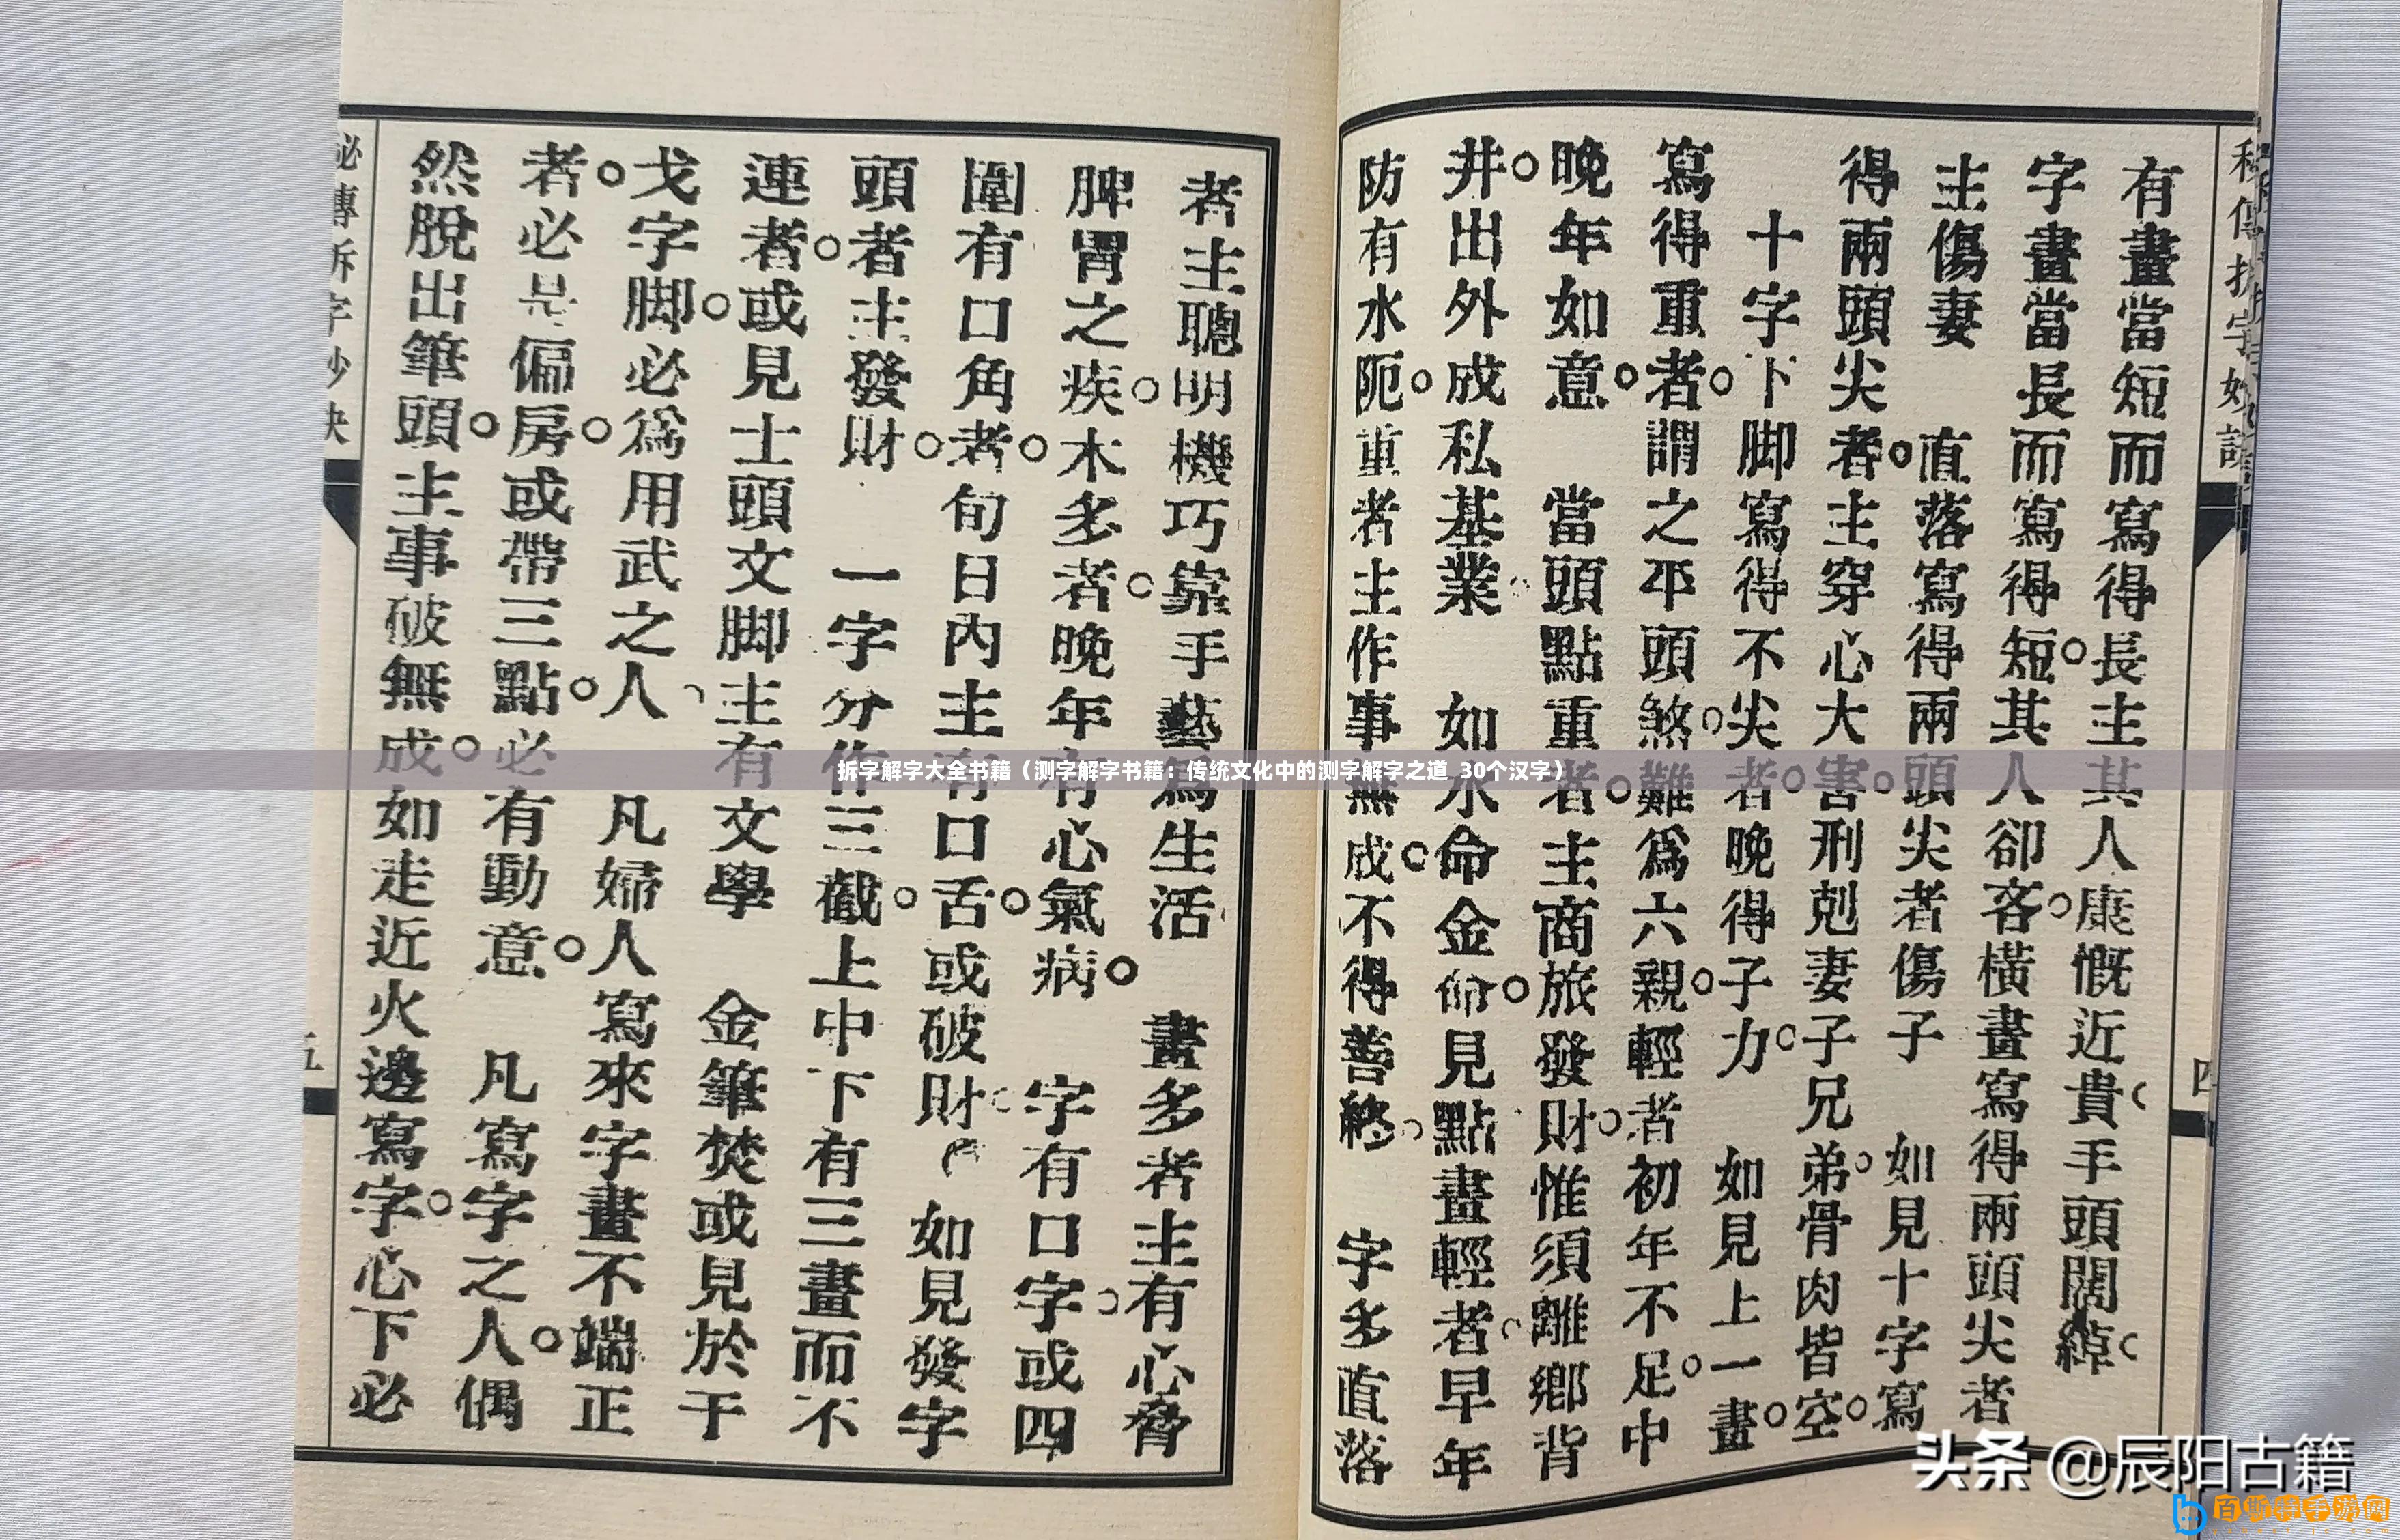 有畫當短而寫得長主其人慷慨近貴手頭闊綽
字畫當長而寫得短其人卻吝橫畫寫得兩頭尖者
主傷妻 直落寫得兩頭尖者傷子 如見十字寫
得兩頭尖者主穿心大害刑剋妻子兄弟骨肉皆空
十字下脚寫得不尖者晚得子力 如見上一畫
寫得重者謂之平頭煞難爲六親輕者初年不足中
晚年如意 當頭點重者主商旅發財惟須離鄉背
井出外成私基業 如水命金命見點畫輕者早年
防有水阨重者主作事無成不得善終 字多直落
者主聰明機巧靠手藝爲生活 畫多者主有心脅
脾胃之疾木多者晚年有心氣病 字有口字或四
圍有口角者旬日內主有口舌或破財 如見發字
頭者主發財 一字分作三截上中下有三畫而不
連者或見士頭文脚主有文學 金筆焚或見於干
戈字脚必爲用武之人 凡婦人寫來字畫不端正
者必是偏房或帶三點必有動意 凡寫字之人偶
然脫出筆頭主事破無成如走近火邊寫字心下必
秘傳拆字妙訣
五
四
拆字解字大全书籍（测字解字书籍：传统文化中的测字解字之道 30个汉字）
头条 @辰阳古籍
百斯特手游网